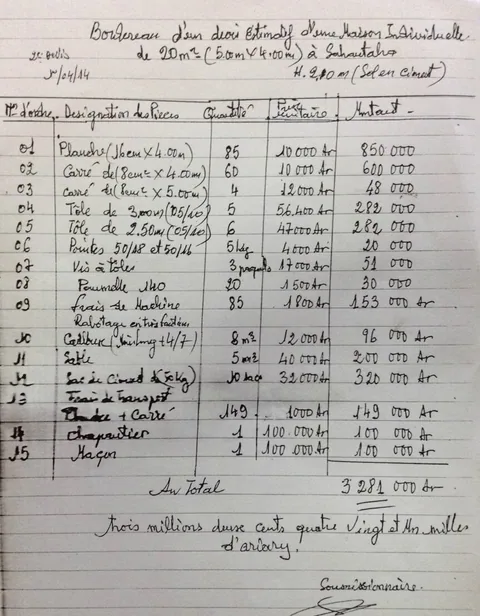 Bordereau d'un devis Estimatif d'une Maison Individuelle
de 20m² (5.00m x 4.00m) à Sahautaha
H. 2,10m (Sol en ciment)
N° d'ordre Designation des Pieces Quantité Prix unitaire Montant
01 Planche (16cm x 4.00m) 85 10 000 Ar 850 000
02 Carré de (8cm² x 4.00m) 60 10 000 Ar 600 000
03 Carré de (8cm² x 5.00m) 4 12 000 Ar 48 000
04 Tôle de 3,00m (05/10) 5 56.400 Ar 282 000
05 Tôle de 2.50m (05/10) 6 47000 Ar 282 000
06 Pointes 50/18 et 50/16 5 kg 4 000 Ar 20 000
07 Vis à Tôles 3 paquets 17 000 Ar 51 000
08 Poumelle 140 20 1500 Ar 30 000
09 frais de Machine 85 1 800 Ar 153 000 Ar
Rabotage
10 4/7) 8 m³ 12 000 Ar 96 000 Ar
11 Sable 5 m³ 40 000 Ar 200 000 Ar
12 Sac de Ciment (50kg) 10 sacs 32 000 Ar 320 000 Ar
13 Frais de Transport
+ Carré 149 1000 Ar 149 000 Ar
14 Chapautier 1 100.000 Ar 100 000 Ar
15 Maçon 1 100 000 Ar 100 000 Ar
Au Total 3 281 000 Ar
trois millions deuse cents quatre Vingt et Un milles
d'ariary.
Soumissionnaire.